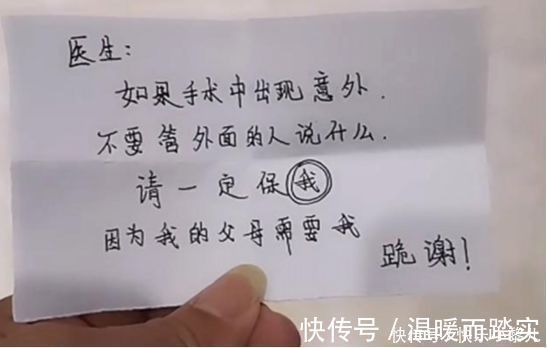 医生:
如果手术中出现意外.
不要管外面的人说什么.
请一定保我
因为我的父母需要我
跪谢!
快传号/温暖而踏实